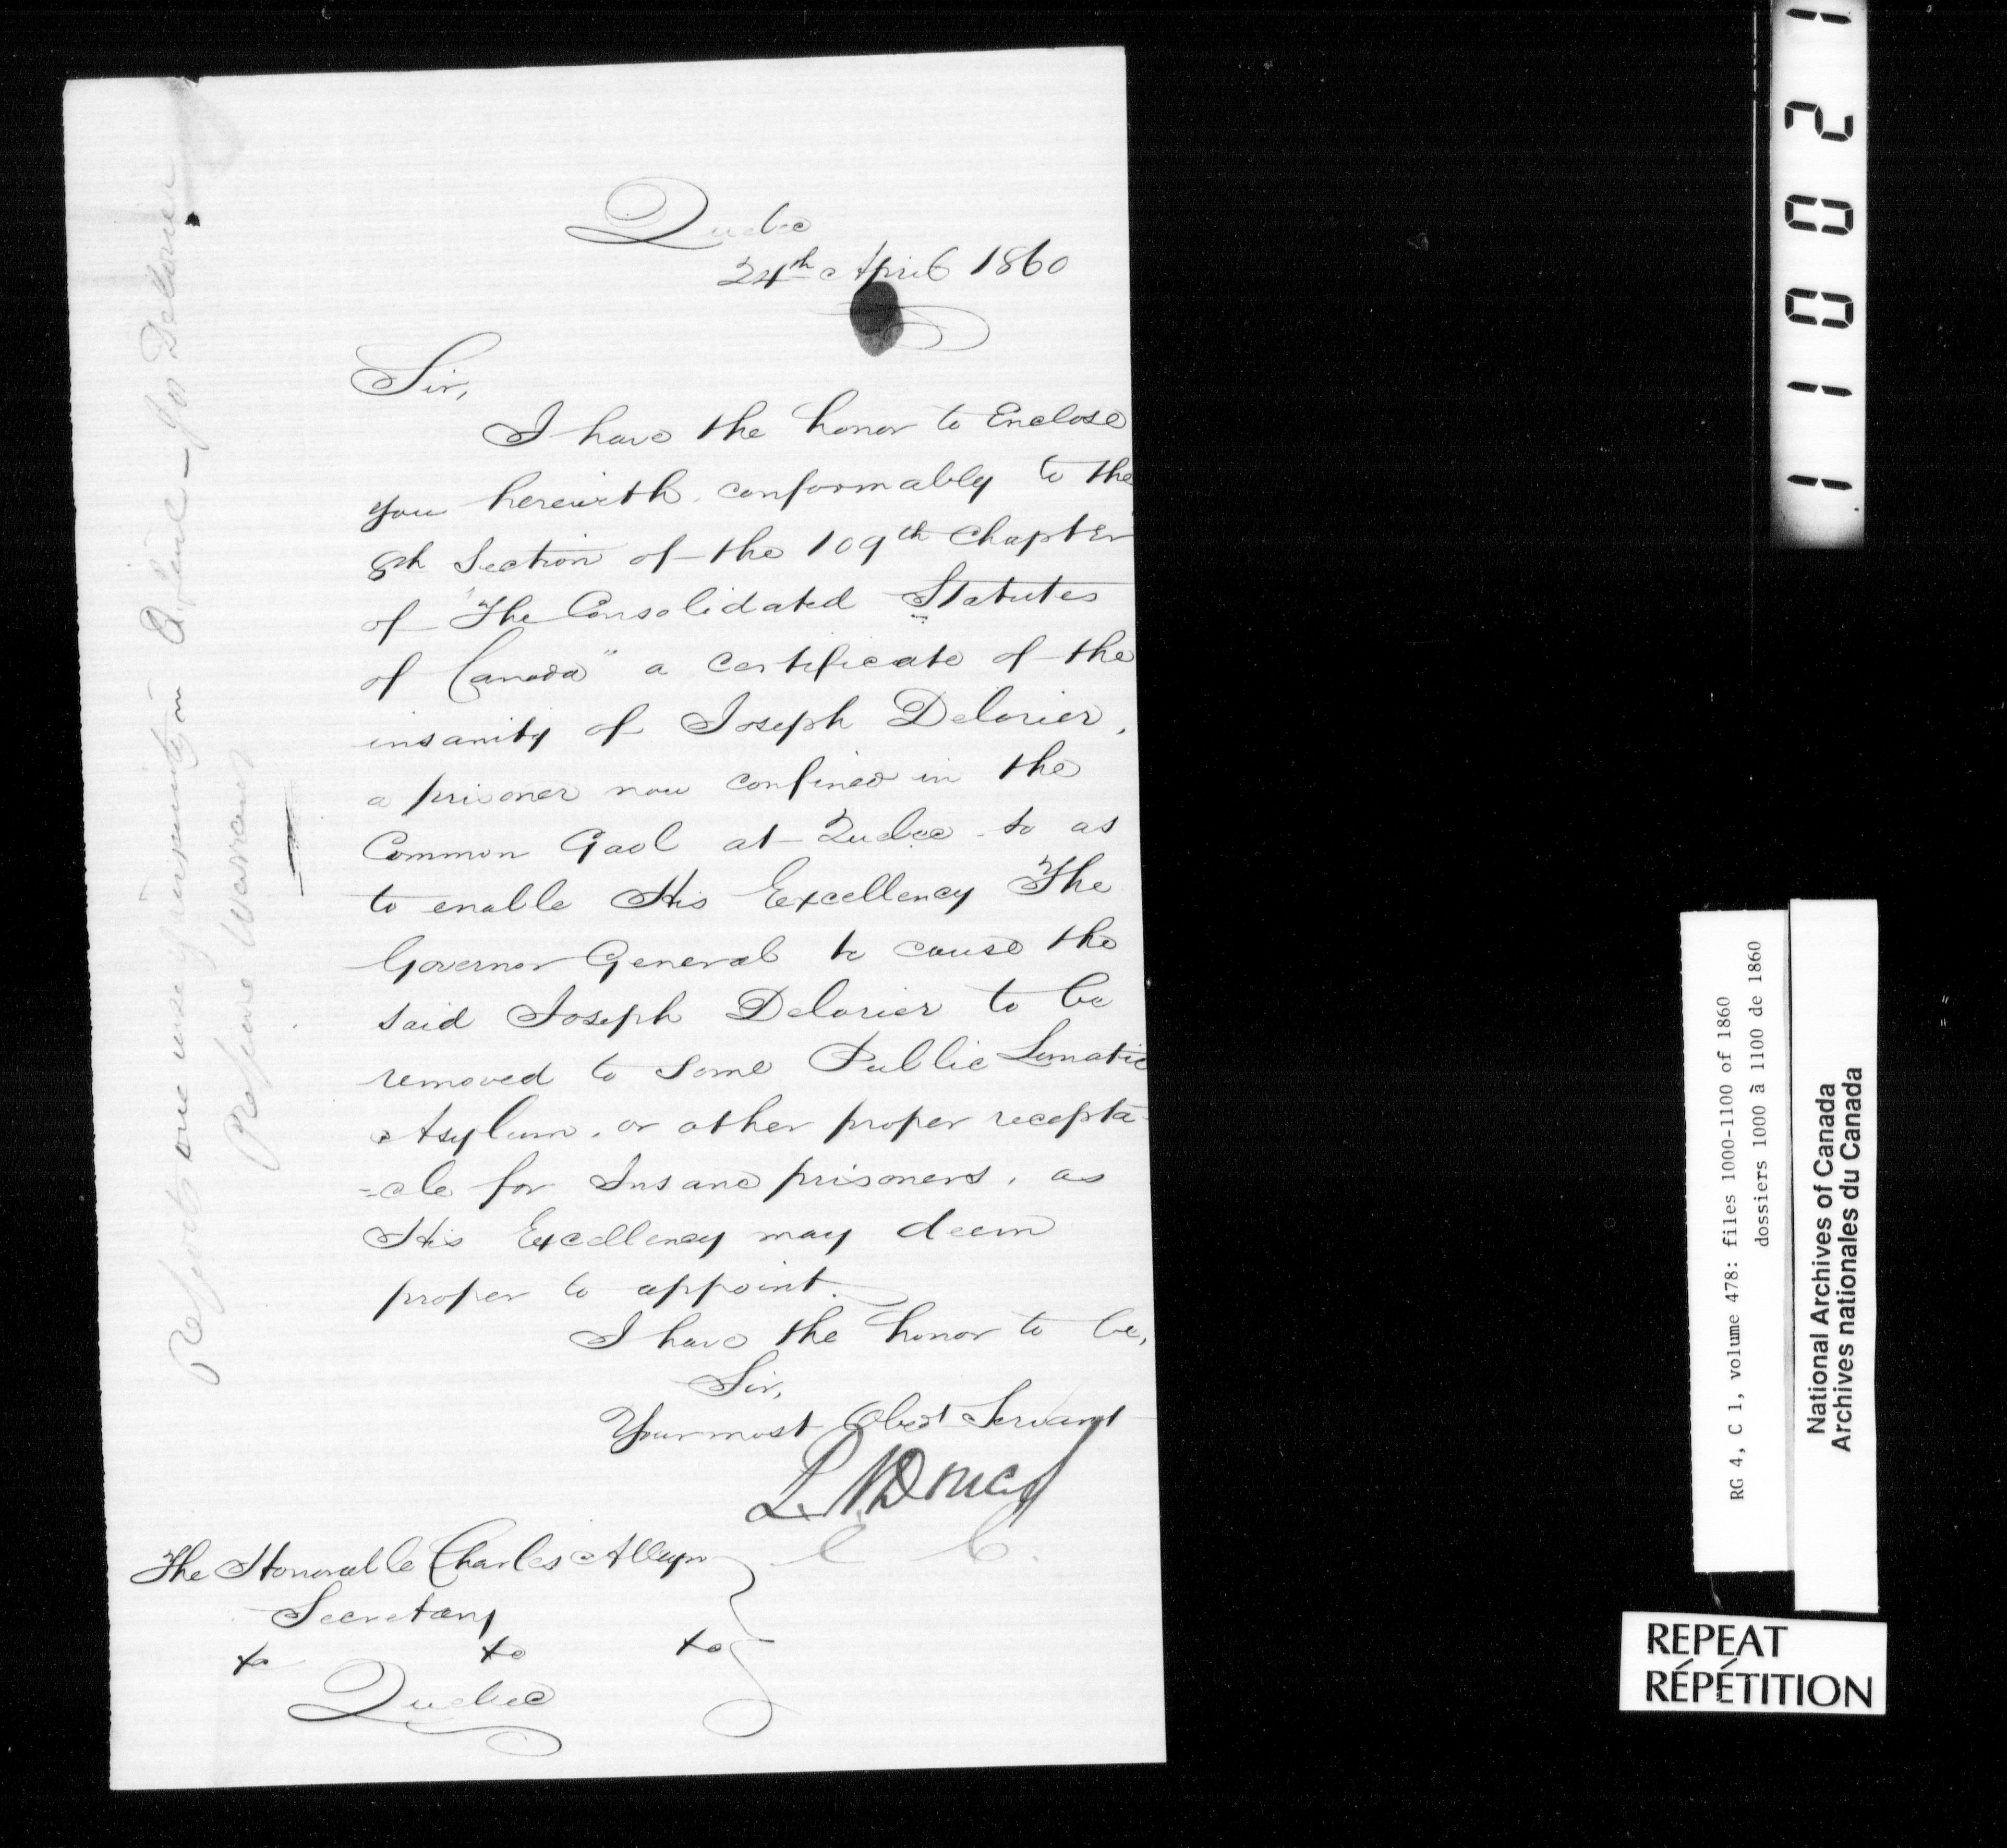 Quebec
24th April 1860
Sir,
I have the honor to Enclose
you herewith, conformably to the
8th Section of the 109th Chapter
of "The Consolidated Statutes
of Canada" a certificate of the
insanity of Joseph Delorier,
a prisoner now confined in the
Common Gaol at Quebec so as
to enable His Excellency The
Governor General to cause the
said Joseph Delorier to be
removed to some Public Lunatic
Asylum, or other proper recepta-
=cle for Insane prisoners, as
His Excellency may deem
proper to appoint.
I have the honor to be,
Sir,
Your most Obed Servant
The Honorable Charles Alleyn
Secretary
Quebec
RG 4, C 1, volume 478: files 1000-1100 of 1860
dossiers 1000 à 1100 de 1860
National Archives of Canada
Archives nationales du Canada
REPEAT
RÉPÉTITION